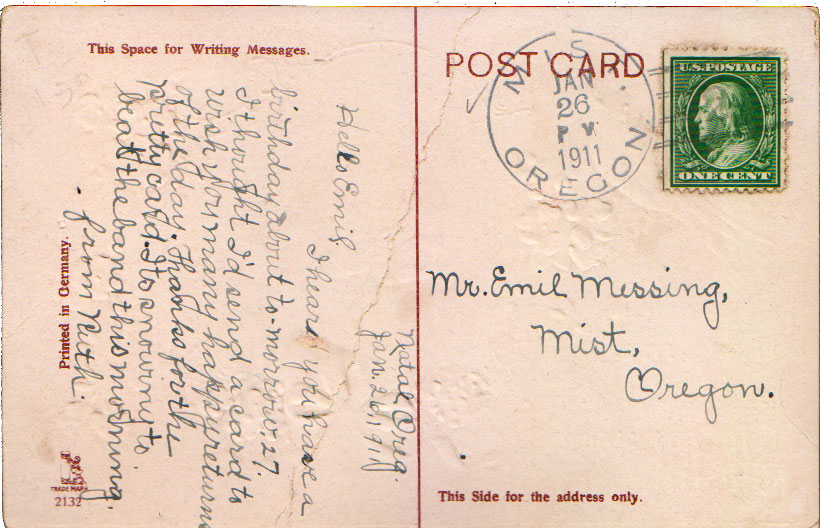 This Space for Writing Messages.
Natal Oreg.
Jan. 26, 1911
Hello Emil
I hear you have a
birthday about to-morrow, 27.
I thought I'd send a card to
wish you many happy returns
of the day. Thanks for the
pretty card. Its snowing to
beat the band this morning.
from Ruth.
Printed in Germany.
TRADE MARK
2132
POST CARD
MIST.
JAN
26
P M
1911
OREGON.
U.S. POSTAGE
ONE CENT
Mr. Emil Messing,
Mist,
Oregon.
This Side for the address only.